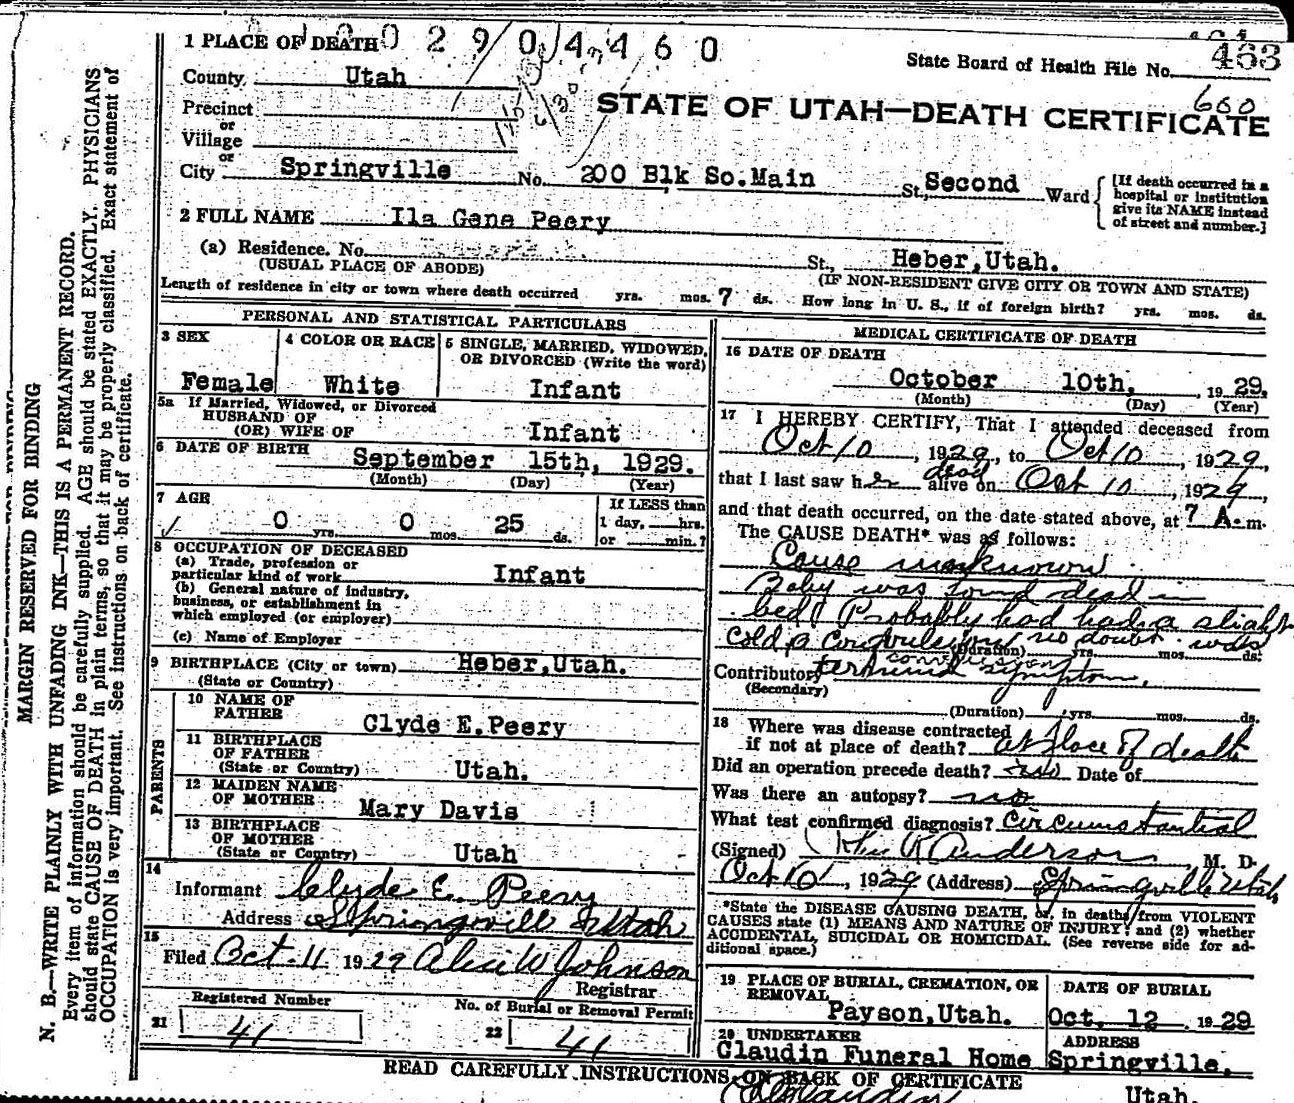 029044 60
1 PLACE OF DEATH
State Board of Health File No. 463
600
County Utah
STATE OF UTAH—DEATH CERTIFICATE
Precinct
or
Village
or
City Springville No. 200 Blk So.Main St., Second Ward
[If death occurred in a
hospital or institution
give its NAME instead
of street and number.]
2 FULL NAME Ila Gene Peery
(a) Residence. No. St., Heber,Utah.
(USUAL PLACE OF ABODE) (IF NON-RESIDENT GIVE CITY OR TOWN AND STATE)
Length of residence in city or town where death occurred yrs. mos. 7 ds. How long in U. S., if of foreign birth? yrs. mos. ds.
PERSONAL AND STATISTICAL PARTICULARS
3 SEX
Female
4 COLOR OR RACE
White
5 SINGLE, MARRIED, WIDOWED,
OR DIVORCED (Write the word)
Infant
5a If Married, Widowed, or Divorced
HUSBAND OF
(OR) WIFE OF Infant
6 DATE OF BIRTH September 15th, 1929.
(Month) (Day) (Year)
7 AGE
0 yrs. 0 mos. 25 ds.
If LESS than
1 day, hrs.
or min.?
8 OCCUPATION OF DECEASED
(a) Trade, profession or
particular kind of work Infant
(b) General nature of industry,
business, or establishment in
which employed (or employer)
(c) Name of Employer
9 BIRTHPLACE (City or town) Heber,Utah.
(State or Country)
PARENTS
10 NAME OF
FATHER Clyde E.Peery
11 BIRTHPLACE
OF FATHER
(State or Country) Utah.
12 MAIDEN NAME
OF MOTHER Mary Davis
13 BIRTHPLACE
OF MOTHER
(State or Country) Utah
14
Informant Clyde E. Peery
Address Springville Utah
15
Filed Oct. 11 1929 Alice W Johnson
Registrar
Registered Number
21 41
No. of Burial or Removal Permit
22 41
MEDICAL CERTIFICATE OF DEATH
16 DATE OF DEATH
October 10th, 1929.
(Month) (Day) (Year)
17 I HEREBY CERTIFY, That I attended deceased from
Oct 10, 1929, to Oct 10, 1929,
dead
that I last saw her alive on Oct 10, 1929,
and that death occurred, on the date stated above, at 7 A.m.
The CAUSE DEATH* was as follows:
Cause unknown
Baby was found dead in
bed. Probably had had a slight
cold, a convulsion no doubt was
(Duration) yrs. mos. ds.
convulsion
Contributory terminal symptom.
(Secondary)
(Duration) yrs. mos. ds.
18 Where was disease contracted
if not at place of death? at place of death
Did an operation precede death? no Date of
Was there an autopsy? no
What test confirmed diagnosis? Circumstantial
(Signed) Anderson, M. D.
Oct 10, 1929 (Address) Springville Utah
*State the DISEASE CAUSING DEATH, or, in deaths from VIOLENT
CAUSES state (1) MEANS AND NATURE OF INJURY; and (2) whether
ACCIDENTAL, SUICIDAL OR HOMICIDAL. (See reverse side for ad-
ditional space.)
19 PLACE OF BURIAL, CREMATION, OR
REMOVAL
Payson,Utah.
DATE OF BURIAL
Oct. 12. 1929
20 UNDERTAKER
Claudin Funeral Home
ADDRESS
Springville,
Utah.
READ CAREFULLY INSTRUCTIONS ON BACK OF CERTIFICATE
MARGIN RESERVED FOR BINDING
N. B.—WRITE PLAINLY WITH UNFADING INK—THIS IS A PERMANENT RECORD.
Every item of information should be carefully supplied. AGE should be stated EXACTLY. PHYSICIANS
should state CAUSE OF DEATH in plain terms, so that it may be properly classified. Exact statement of
OCCUPATION is very important. See instructions on back of certificate.